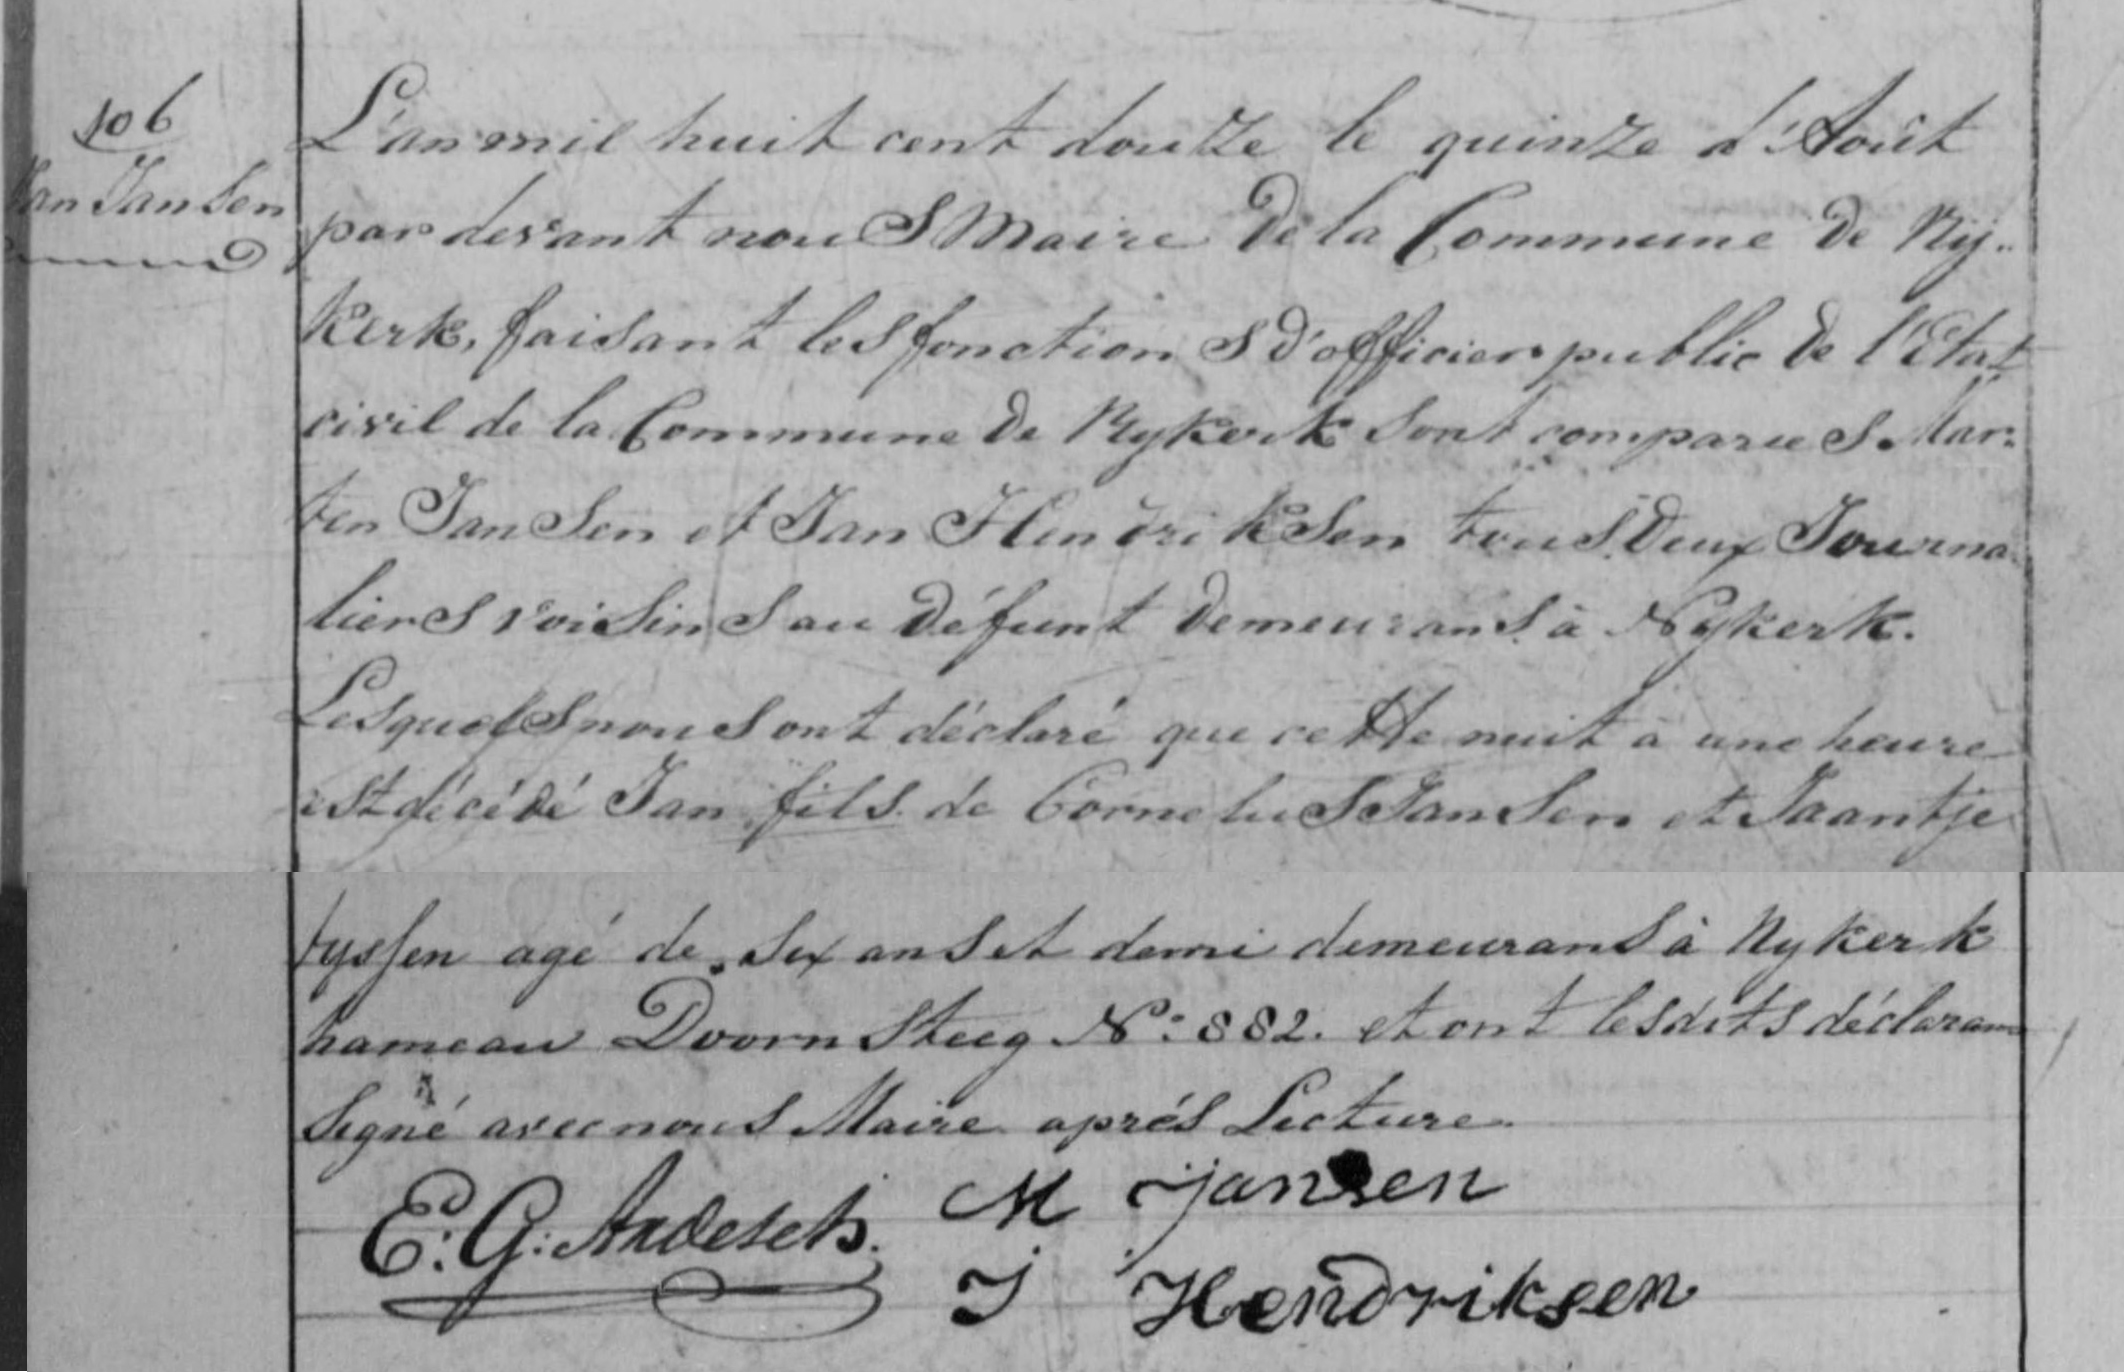 106
Jan Jansen
L'an mil huit cent douze le quinze d'Août
par devant nous Maire de la Commune de Nij-
kerk, faisant les fonctions d'officier public de l'Etat
civil de la Commune de Nykerk sont comparues Mar-
ten Jansen et Jan Hendriksen tous deux Journa
liers voisins au défunt demeurans à Nykerk.
Lesquels nous ont déclaré que cette nuit à une heure
est décédé Jan fils de Cornelus Jansen et Jaantje
tyssen agé de six ans et demi demeurans à Nykerk
hameau Doornsteeg N:o 882. et ont lesdits déclarans
signé avec nous Maire aprés Lecture.
E: G: Ardesch.
M jansen
J Hendriksen